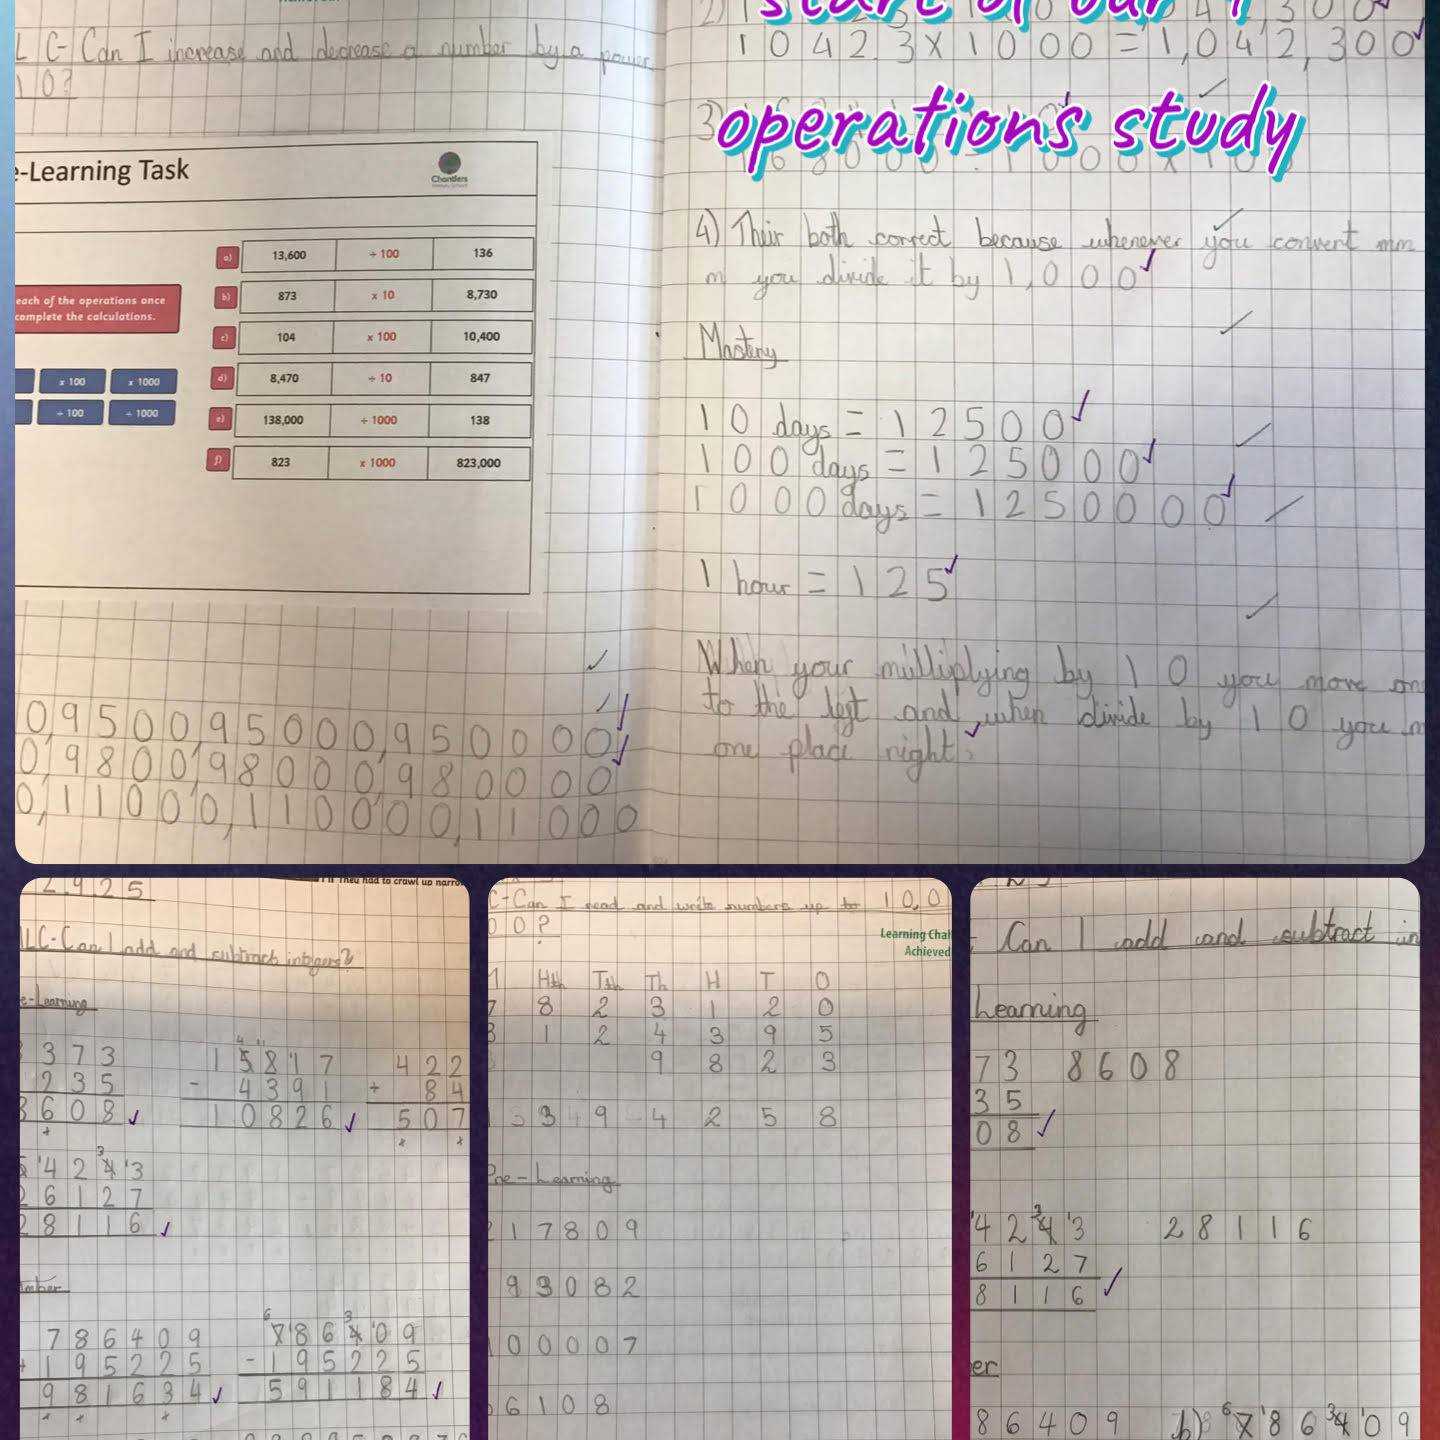 start of our 4
operations study
LC-Can I increase and decrease a number by a power
10?
e-Learning Task
Chantlers
each of the operations once
complete the calculations.
x 100 x 1000
÷ 100 ÷ 1000
a) 13,600 ÷ 100 136
b) 873 x 10 8,730
c) 104 x 100 10,400
d) 8,470 ÷ 10 847
e) 138,000 ÷ 1000 138
f) 823 x 1000 823,000
0,9500950 00,950000
0,9800,98000,980000
0,11000,110000,11000
2)
10423x1000=1,042,300
3)
4) Their both correct because whenever you convert mm
m you divide it by 1,000
Mastery
10 days = 12500
100 days = 125000
1000 days = 1250000
1 hour = 125
When your multiplying by 10 you move one
to the left and when divide by 10 you m
one place right.
2.9.25
They had to crawl up narro
LC-Can I add and subtract integers?
e-Learning
373
235
8608
15817
- 4391
10826
422
+ 84
507
4243
26127
28116
mber
786409
+195225
981634
786409
-195225
591184
C-Can I read and write numbers up to 10,0
00?
Learning Chal
Achieved
M Hth Tth Th H T O
7 8 2 3 1 2 0
3 1 2 4 3 9 5
9 8 2 3
3 9 4 2 5 8
Pre-Learning
217809
93082
00007
6108
Can I add and subtract in
Learning
73 8608
35
08
4243 28116
6127
8116
er
86409 b) 786409